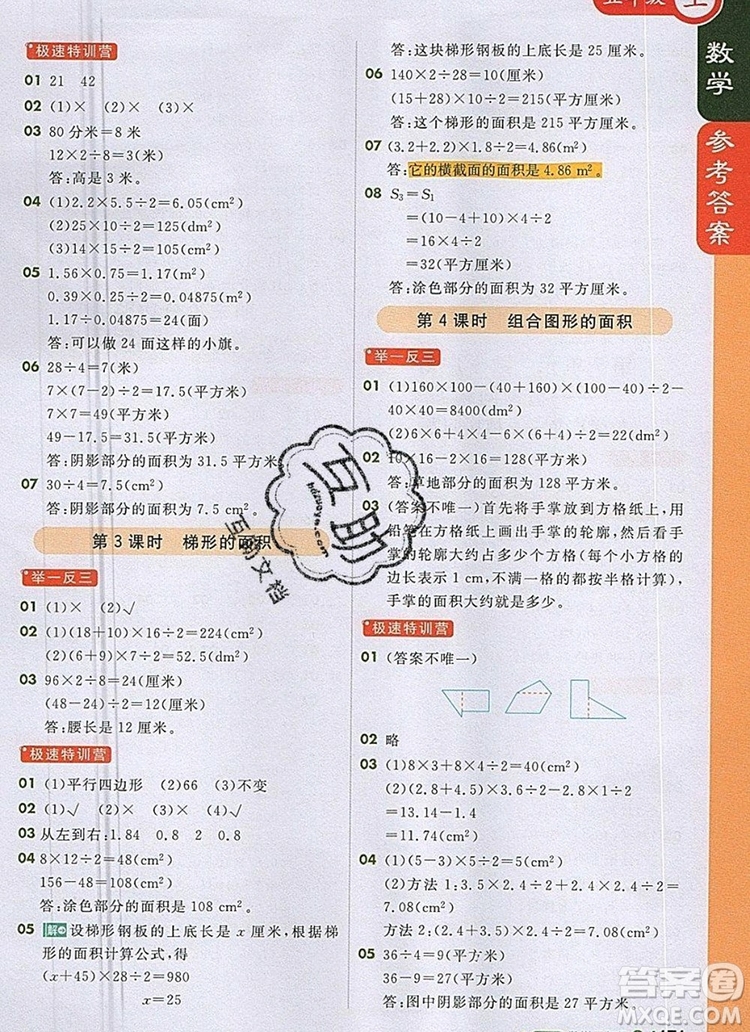 五年级 上
数学
参考答案
极速特训营
01 21 42
02 (1)× (2)× (3)×
03 80 分米=8 米
12×2÷8=3(米)
答:高是 3 米。
04 (1)2.2×5.5÷2=6.05(cm²)
(2)25×10÷2=125(cm²)
(3)14×15÷2=105(cm²)
05 1.56×0.75=1.17(m²)
0.39×0.25÷2=0.04875(m²)
1.17÷0.04875=24(面)
答:可以做 24 面这样的小旗。
06 28÷4=7(米)
7×(7−2)÷2=17.5(平方米)
7×7=49(平方米)
49−17.5=31.5(平方米)
答:阴影部分的面积为 31.5 平方米。
07 30÷4=7.5(cm²)
答:阴影部分的面积为 7.5 cm²。
第 3 课时 梯形的面积
举一反三
01 (1)× (2)√
02 (1)(18+10)×16÷2=224(cm²)
(2)(6+9)×7÷2=52.5(cm²)
03 96×2÷8=24(厘米)
(48−24)÷2=12(厘米)
答:腰长是 12 厘米。
极速特训营
01 (1)平行四边形 (2)66 (3)不变
02 (1)√ (2)× (3)× (4)√
03 从左到右:1.84 0.8 2 0.8
04 8×12÷2=48(cm²)
156−48=108(cm²)
答:涂色部分的面积是 108 cm²。
05 解 设梯形钢板的上底长是 x 厘米,根据梯
形的面积计算公式,得
(x+45)×28÷2=980
x=25
答:这块梯形钢板的上底长是 25 厘米。
06 140×2÷28=10(厘米)
(15+28)×10÷2=215(平方厘米)
答:这个梯形的面积是 215 平方厘米。
07 (3.2+2.2)×1.8÷2=4.86(m²)
答:它的横截面的面积是 4.86 m²。
08 S₃=S₁
=(10−4+10)×4÷2
=16×4÷2
=32(平方厘米)
答:涂色部分的面积为 32 平方厘米。
第 4 课时 组合图形的面积
举一反三
01 (1)160×100−(40+160)×(100−40−
40)×40÷2=8400(dm²)
(2)6×4−4×4÷2+(6+4)÷2=22(dm²)
02 10×16−2×16=128(平方米)
答:草地部分的面积是 128 平方米。
03 (答案不唯一)首先将手掌放到方格纸上,用
铅笔在方格纸上画出手掌的轮廓,然后看一看
手掌的轮廓大约占多少个方格(每个小方格的
边长表示 1 cm,不是一格的都按半格计算),
手掌的面积大约就是多少。
极速特训营
01 (答案不唯一)
02 略
03 (1)8×3+8×4÷2=40(cm²)
(2)(2.8+4.5)×3.6÷2−2.8×1÷2
=13.14−1.4
=11.74(cm²)
04 (1)(5+9)×4÷2=28(cm²)
(2)方法 1:2.4×2+2.4×2÷2=7.2(cm²)
方法 2:(2.4+3.5)×2.6÷2=7.67(cm²)
05 36÷4=9(平方米)
36−9=27(平方米)
答:图中阴影部分的面积是
互助
互助文档
Huzuwang.com
答案圈
MXQE.COM